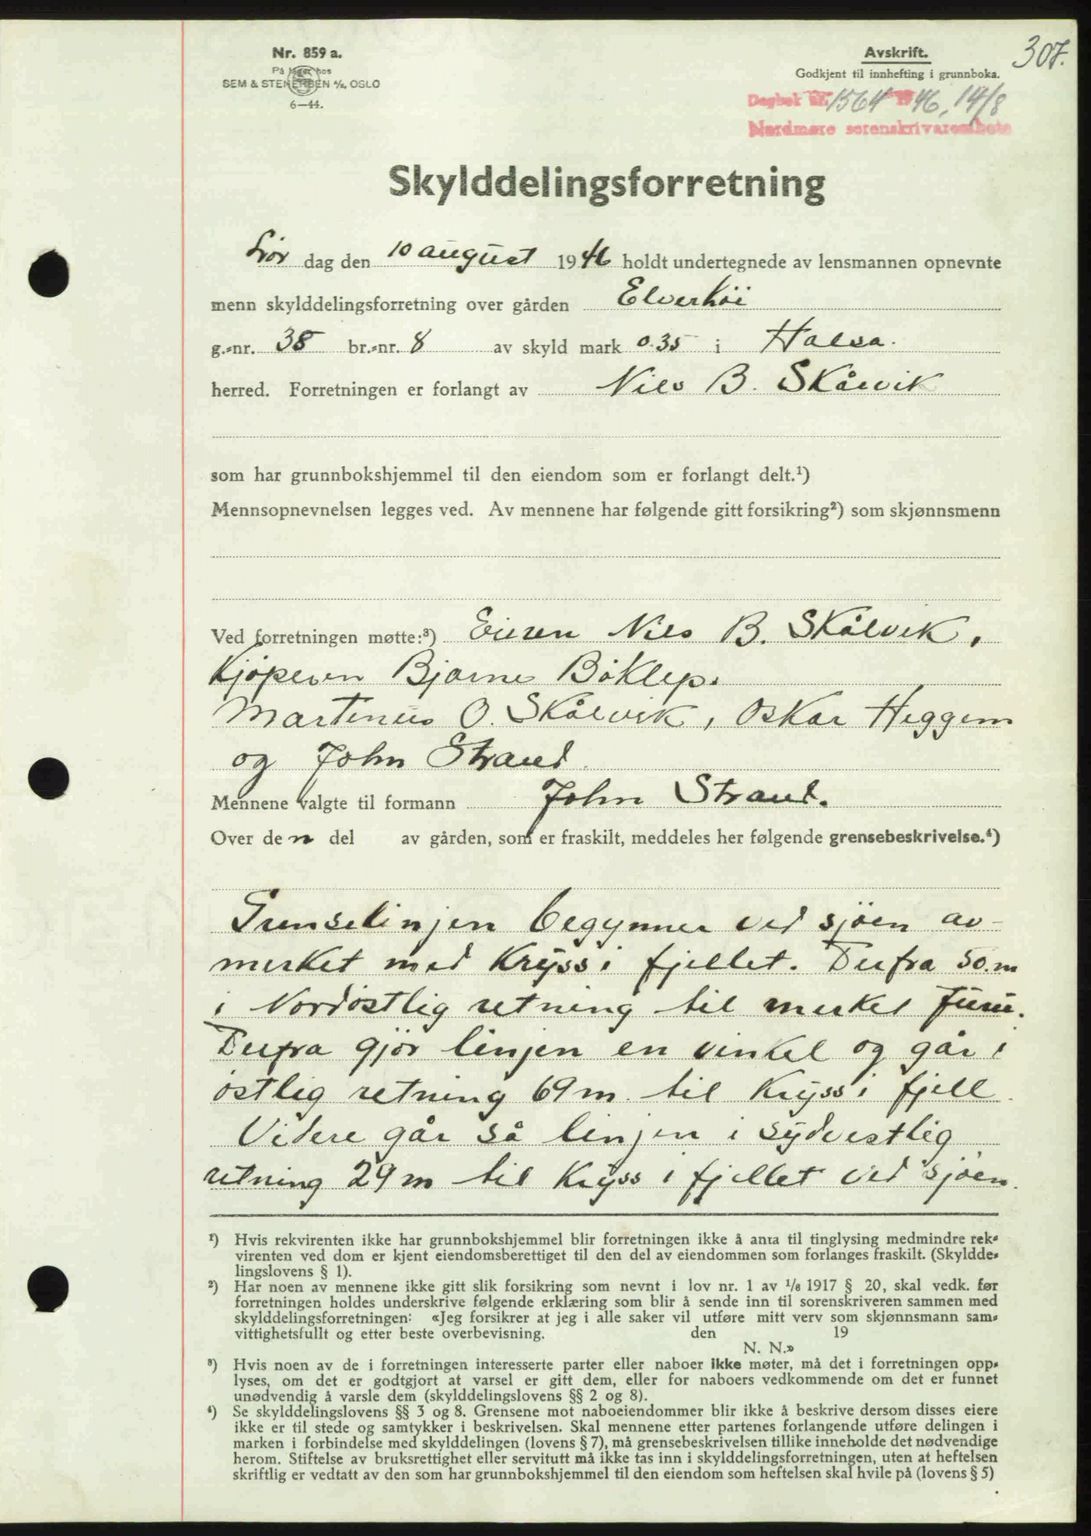 307.
Nr. 859 a.
På lager hos
SEM & STENERSEN A/S, OSLO
6—44.
Avskrift.
Godkjent til innhefting i grunnboka.
Dagbok nr. 1564 1946, 14/8
Nordmøre sorenskriverembete
Skylddelingsforretning
Lør dag den 10 august 1946 holdt undertegnede av lensmannen opnevnte
menn skylddelingsforretning over gården Elverhöi
g.-nr. 38 br.-nr. 8 av skyld mark 0.35 i Halsa.
herred. Forretningen er forlangt av Nils B. Skålvik
som har grunnbokshjemmel til den eiendom som er forlangt delt.¹)
Mennsopnevnelsen legges ved. Av mennene har følgende gitt forsikring²) som skjønnsmenn
Ved forretningen møtte:³) Eieren Nils B. Skålvik,
Kjøperen Bjarne Böklep.
Martinus O. Skålvik, Oskar Heggem
og John Strand.
Mennene valgte til formann John Strand.
Over den del av gården, som er fraskilt, meddeles her følgende grensebeskrivelse.⁴)
Grenselinjen begynner ved sjöen av-
merket med Kryss i fjellet. Derfra 50.m
i Nordöstlig retning til merket furu.
Derfra gjör linjen en vinkel og går i
östlig retning 69 m. til Kryss i fjell.
Videre går så linjen i sydvestlig
retning 29 m til Kryss i fjellet ved sjöen.
¹) Hvis rekvirenten ikke har grunnbokshjemmel blir forretningen ikke å anta til tinglysing medmindre rek-
virenten ved dom er kjent eiendomsberettiget til den del av eiendommen som forlanges fraskilt. (Skyldde-
lingslovens § 1).
²) Har noen av mennene ikke gitt slik forsikring som nevnt i lov nr. 1 av 1/6 1917 § 20, skal vedk. før
forretningen holdes underskrive følgende erklæring som blir å sende inn til sorenskriveren sammen med
skylddelingsforretningen: «Jeg forsikrer at jeg i alle saker vil utføre mitt verv som skjønnsmann sam-
vittighetsfullt og etter beste overbevisning. den 19
N. N.»
³) Hvis noen av de i forretningen interesserte parter eller naboer ikke møter, må det i forretningen opp-
lyses, om det er godtgjort at varsel er gitt dem, eller for naboers vedkommende om det er funnet
unødvendig å varsle dem (skylddelingslovens §§ 2 og 8).
⁴) Se skylddelingslovens §§ 3 og 8. Grensene mot naboeiendommer blir ikke å beskrive dersom disses eiere
ikke er til stede og samtykker i beskrivelsen. Skal mennene etter partenes forlangende utføre delingen i
marken i forbindelse med skylddelingen (lovens § 7), må grensebeskrivelsen tillike inneholde det nødvendige
herom. Stiftelse av bruksrettighet eller servitutt må ikke tas inn i skylddelingsforretningen, uten at heftelsen
skriftlig er vedtatt av den som har grunnbokshjemmel til den eiendom som heftelsen skal hvile på (lovens § 5)